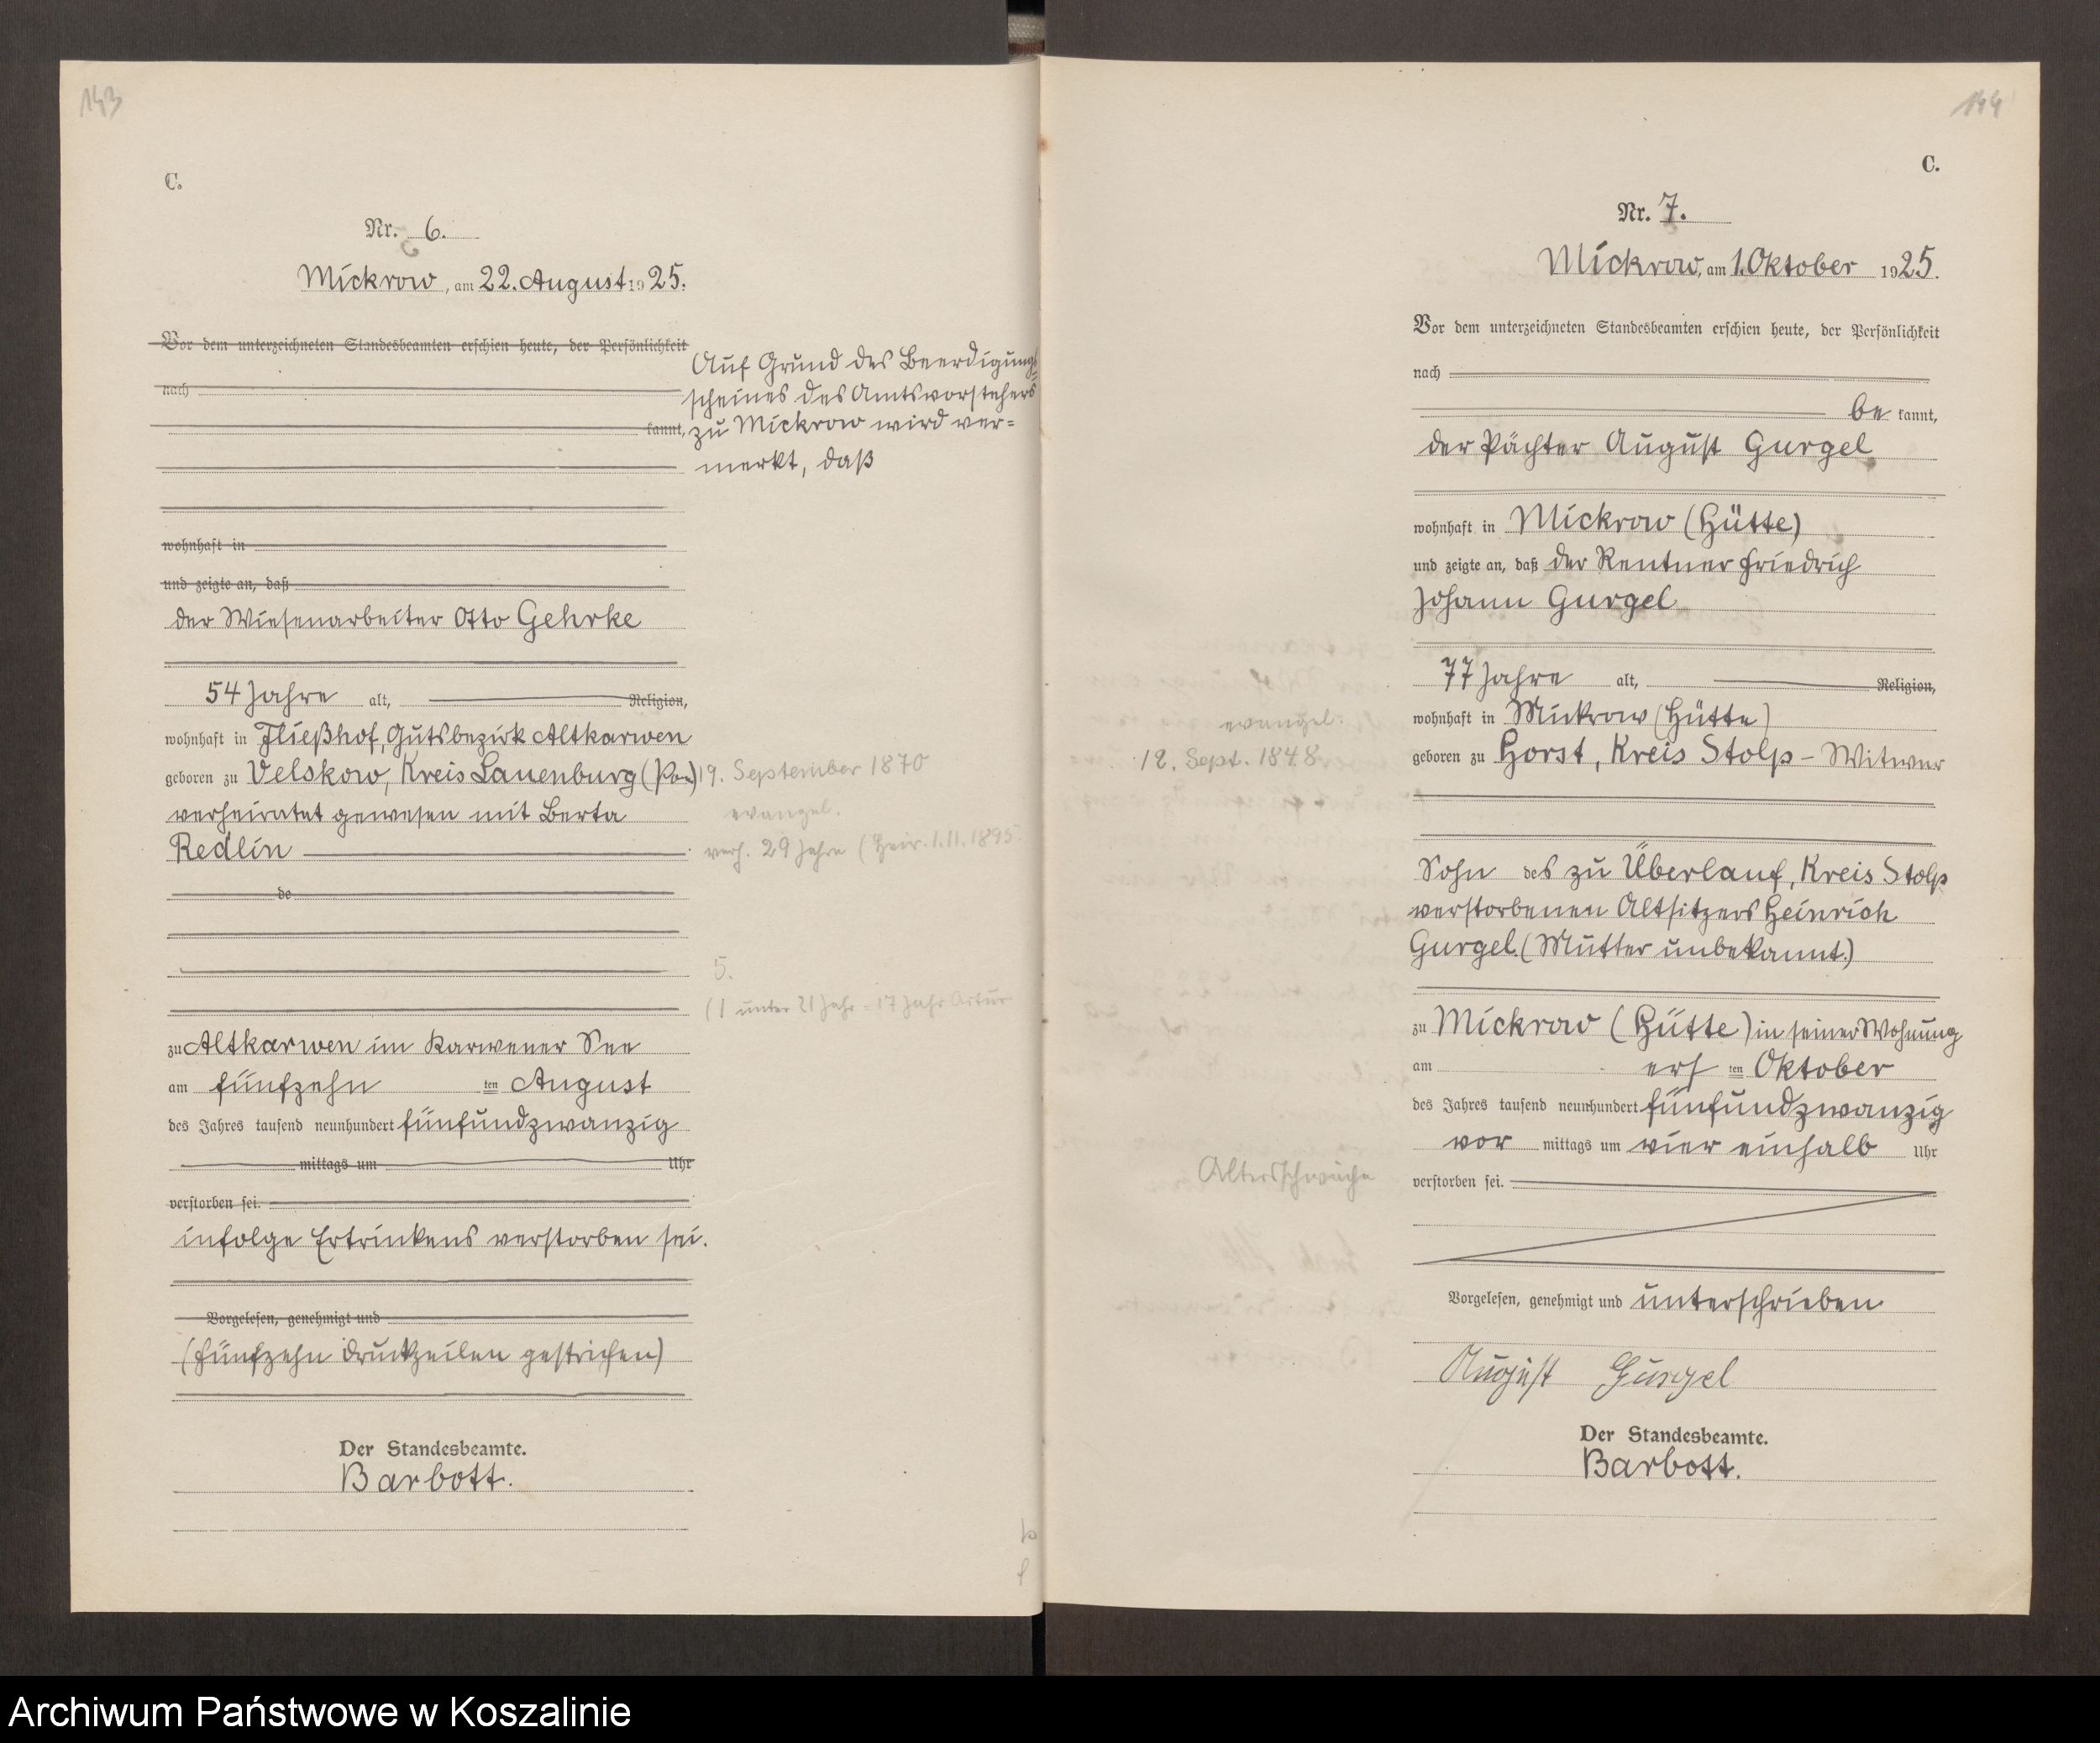 143
C.
Nr. 6.
Mickrow, am 22. August 1925.
Vor dem unterzeichneten Standesbeamten erschien heute, der Persönlichkeit
nach
kannt,
Auf Grund des Beerdigungs=
scheines des Amtsvorstehers
zu Mickrow wird ver=
merkt, daß
wohnhaft in
und zeigte an, daß
der Wiesenarbeiter Otto Gehrke
54 Jahre alt, Religion,
wohnhaft in Fließhof, Gutsbezirk Altkarwen
geboren zu Velskow, Kreis Lauenburg (Pom)
19. September 1870
verheiratet gewesen mit Berta
evangel.
Redlin
verh. 29 Jahre (Heir. 1.11.1895
de
5.
(1 unter 21 Jahr - 17 Jahr Artur
zu Altkarwen im Karwener See
am fünfzehn ten August
des Jahres tausend neunhundert fünfundzwanzig
mittags um Uhr
verstorben sei.
infolge Ertrinkens verstorben sei.
Vorgelesen, genehmigt und
(Fünfzehn Druckzeilen gestrichen)
Der Standesbeamte.
Barbott.
144
C.
Nr. 7.
Mickrow, am 1. Oktober 1925.
Vor dem unterzeichneten Standesbeamten erschien heute, der Persönlichkeit
nach
be kannt,
der Pächter August Gurgel
wohnhaft in Mickrow (Hütte)
und zeigte an, daß der Rentner Friedrich
Johann Gurgel
77 Jahre alt, Religion,
evangel.
wohnhaft in Mickrow (Hütte)
12. Sept. 1848
geboren zu Horst, Kreis Stolp - Witwer
Sohn des zu Überlauf, Kreis Stolp
verstorbenen Altsitzers Heinrich
Gurgel. (Mutter unbekannt.)
zu Mickrow (Hütte) in seiner Wohnung
am ers ten Oktober
des Jahres tausend neunhundert fünfundzwanzig
vor mittags um vier einhalb Uhr
Altersschwäche
verstorben sei.
Vorgelesen, genehmigt und unterschrieben
August Gurgel
Der Standesbeamte.
Barbott.
Archiwum Państwowe w Koszalinie